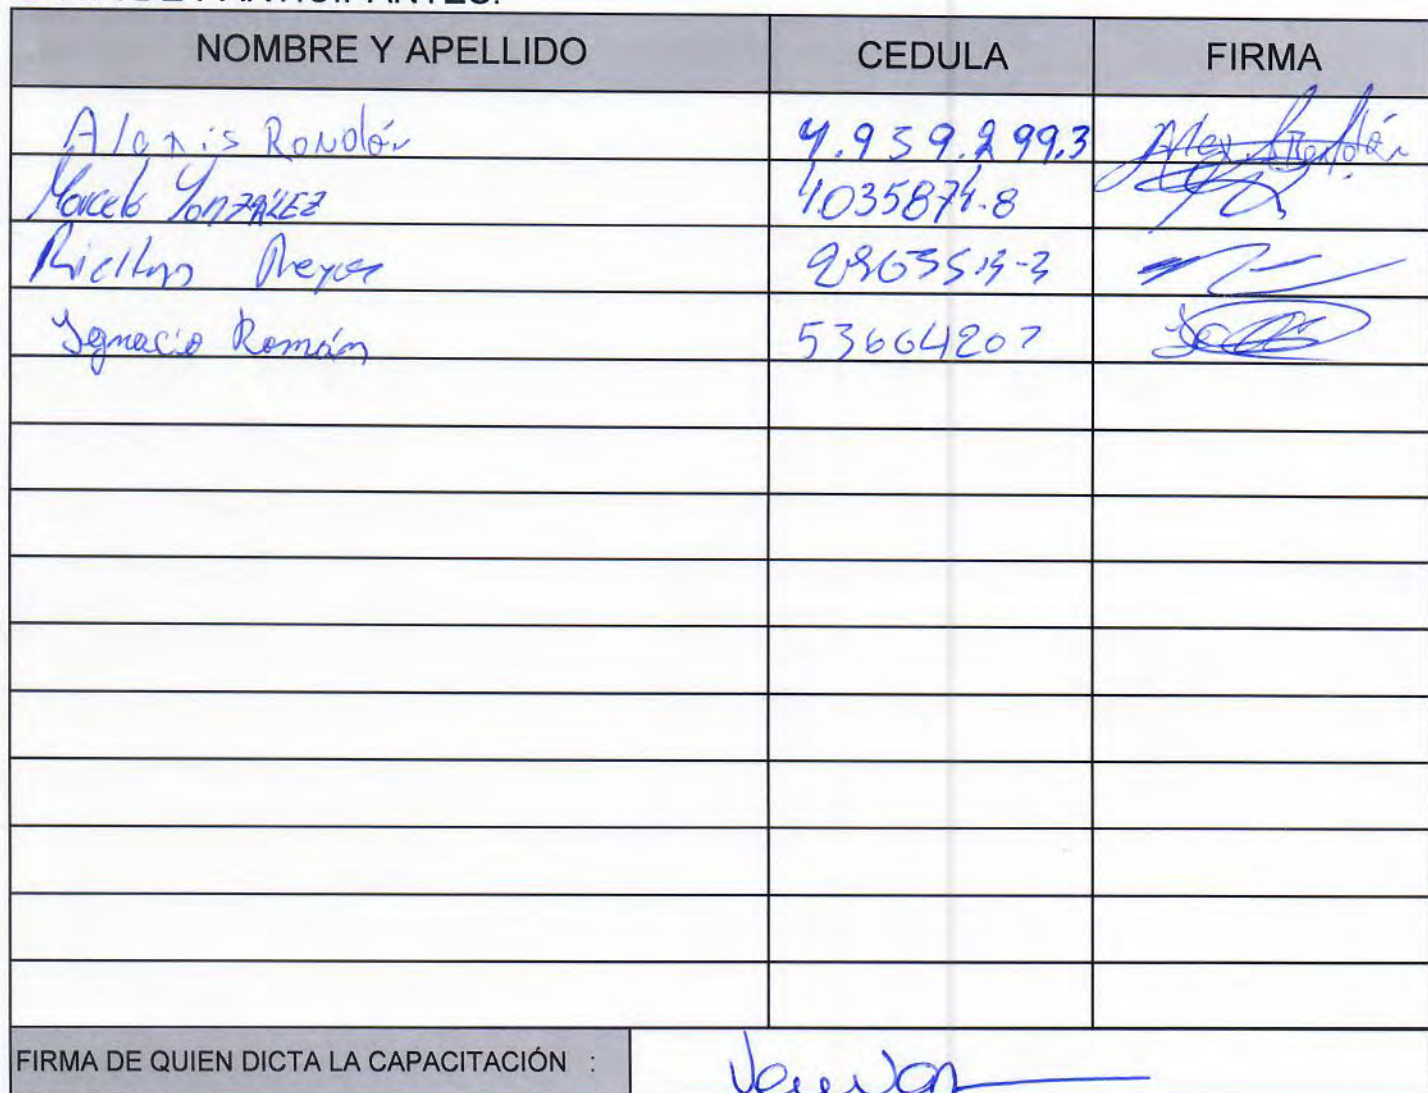 NOMBRE Y APELLIDO CEDULA FIRMA
Alexis Rondón 4.959.299.3 Alex Rondón
Marcelo González 4035874-8
Reyes
Ignacio Román 53664207
FIRMA DE QUIEN DICTA LA CAPACITACIÓN :